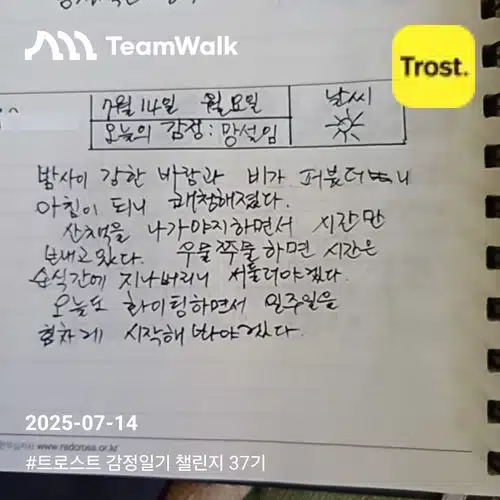 TeamWalk
Trost.
7월 14일 월요일
날씨
오늘의 감정 : 망설임
밤사이 강한 바람과 비가 퍼붓더니
아침이 되니 쾌청해졌다.
산책을 나가야지하면서 시간만
보내고 있다. 우물쭈물하면 시간은
순식간에 지나버리니 서둘러야겠다.
오늘도 화이팅하면서 일주일을
힘차게 시작해 봐야겠다.
2025-07-14
www.redcross.or.kr
#트로스트 감정일기 챌린지 37기